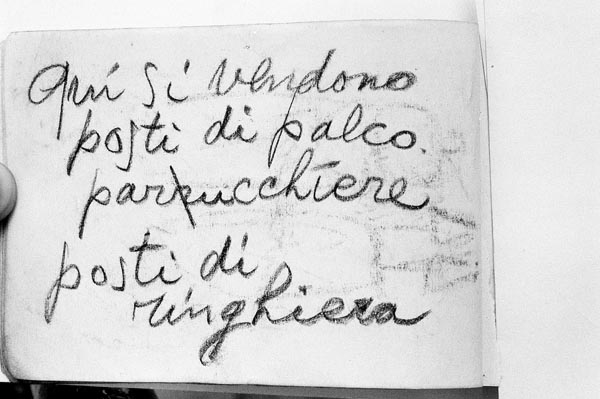 Qui si vendono
posti di palco.
parrucchiere
posti di
ringhiera